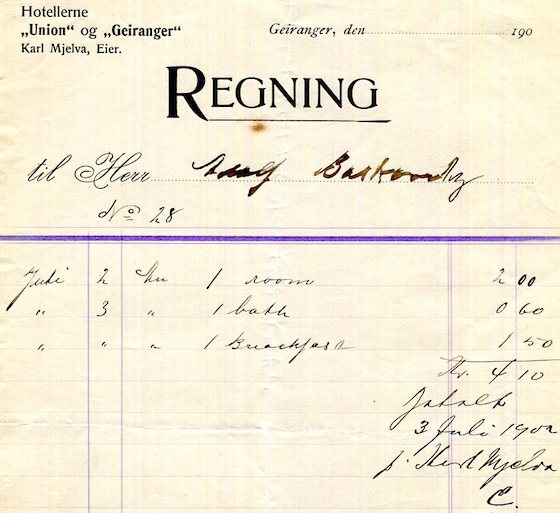 Hotellerne
„Union“ og „Geiranger“
Karl Mjelva, Eier.
Geiranger, den 190
REGNING
til Herr Adolf
No 28
Juli 2 1 room 2 00
„ 3 „ 1 bath 0 60
„ „ „ 1 Breackfast 1 50
Kr. 4 10
Betalt
3 Juli 1902
p. Karl Mjelva